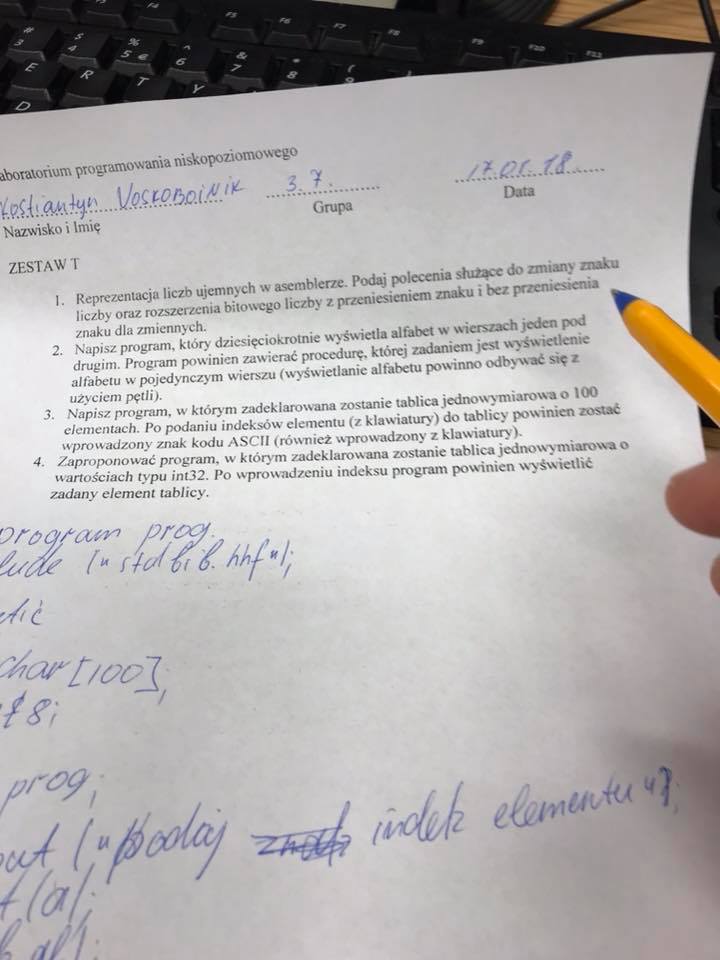 aboratorium programowania niskopoziomowego
Kostiantyn Voskoboinik 3.7. 17.01.18
Nazwisko i Imię Grupa Data
ZESTAW T
1. Reprezentacja liczb ujemnych w asemblerze. Podaj polecenia służące do zmiany znaku
liczby oraz rozszerzenia bitowego liczby z przeniesieniem znaku i bez przeniesienia
znaku dla zmiennych.
2. Napisz program, który dziesięciokrotnie wyświetla alfabet w wierszach jeden pod
drugim. Program powinien zawierać procedurę, której zadaniem jest wyświetlenie
alfabetu w pojedynczym wierszu (wyświetlanie alfabetu powinno odbywać się z
użyciem pętli).
3. Napisz program, w którym zadeklarowana zostanie tablica jednowymiarowa o 100
elementach. Po podaniu indeksów elementu (z klawiatury) do tablicy powinien zostać
wprowadzony znak kodu ASCII (również wprowadzony z klawiatury).
4. Zaproponować program, w którym zadeklarowana zostanie tablica jednowymiarowa o
wartościach typu int32. Po wprowadzeniu indeksu program powinien wyświetlić
zadany element tablicy.
program prog.
lude ("stdbib.hhf");
char [100];
8;
prog;
("Podaj indek elementu");
(a);